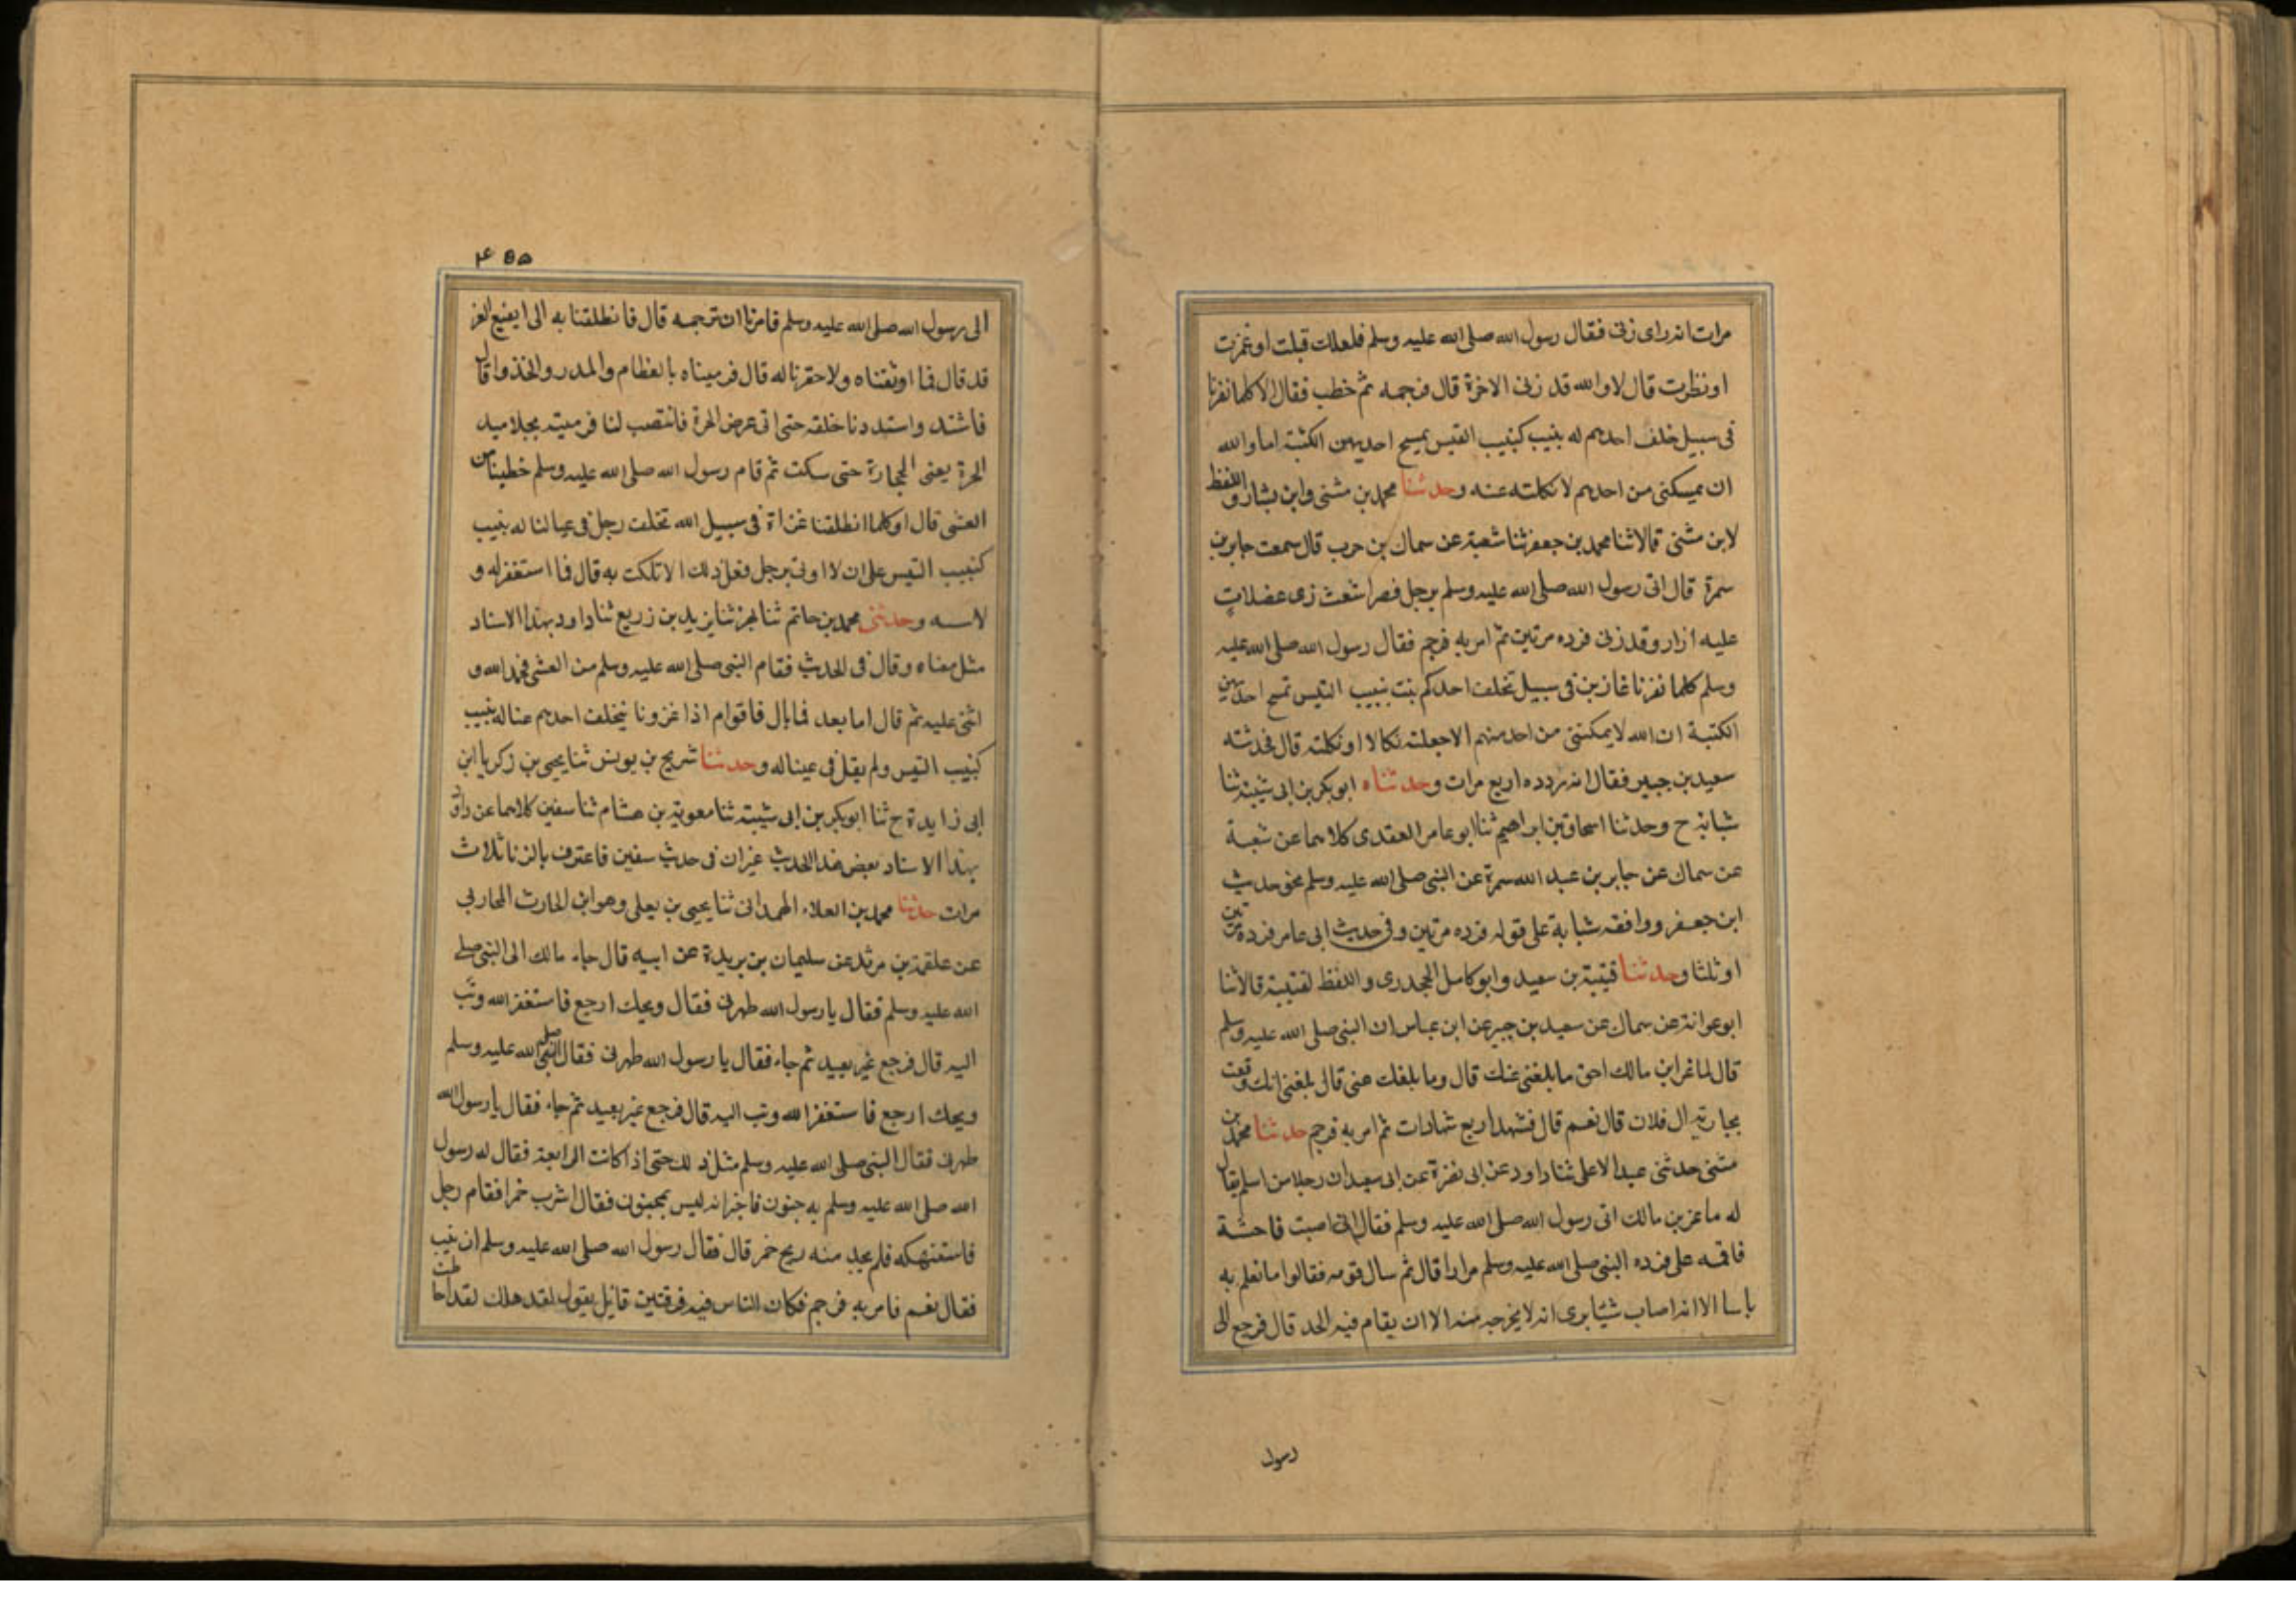 مرات انه رای زنی فقال رسول الله صلی الله علیه وسلم فلعلك قبلت او غمزت
او نظرت قال لا والله قد زنی الاخرة قال فرجمه ثم خطب فقال الا كلما نفرنا
فی سبیل خلف احدهم له نبیب كنبیب التیس یمنح احدیهن الكثبة اما والله
ان یمكنی من احدهم لانكلته عنه وحدثنا محمد بن مثنی وابن بشار واللفظ
لابن مثنی قالا ثنا محمد بن جعفر ثنا شعبة عن سماك بن حرب قال سمعت جابر بن
سمرة قال اتی رسول الله صلی الله علیه وسلم برجل قصر اشعث ذی عضلات
علیه ازار وقد زنی فرده مرتین ثم امر به فرجم فقال رسول الله صلی الله علیه
وسلم كلما نفرنا غازین فی سبیل تخلف احدكم ینب نبیب التیس تمنح احدیهن
الكثبة ان الله لا یمكننی من احد منهم الا جعلته نكالا او نكلته قال فحدثته
سعید بن جبیر فقال انه رده اربع مرات وحدثناه ابو بكر بن ابی شیبة ثنا
شبابة ح وحدثنا اسحاق بن ابراهیم ثنا ابو عامر العقدی كلاهما عن شعبة
عن سماك عن جابر بن عبد الله سمرة عن النبی صلی الله علیه وسلم نحو حدیث
ابن جعفر ووافقه شبابة علی قوله فرده مرتین وفی حدیث ابی عامر فرده مرتین
او ثلثا وحدثنا قتیبة بن سعید وابو كامل الجحدری واللفظ لقتیبة قالا ثنا
ابو عوانة عن سماك عن سعید بن جبیر عن ابن عباس ان النبی صلی الله علیه وسلم
قال لماغر ابن مالك احق ما بلغنی عنك قال وما بلغك عنی قال بلغنی انك وقعت
بجاریة ال فلان قال نعم قال فشهد اربع شهادات ثم امر به فرجم حدثنا محمد بن
مثنی حدثنی عبد الاعلی ثنا داود عن ابی نضرة عن ابی سعید ان رجلا من اسلم یقال
له ماعز بن مالك اتی رسول الله صلی الله علیه وسلم فقال انی اصبت فاحشة
فاقمه علی فرده النبی صلی الله علیه وسلم مرارا قال ثم سال قومه فقالوا ما نعلم به
باسا الا انه اصاب شیئا یری انه لا یخرجه منه الا ان یقام فیه الحد قال فرجع الی
رسول
۴۵۵
الی رسول الله صلی الله علیه وسلم فامرنا ان نرجمه قال فانطلقنا به الی ایقیع الغر
قد قال فما اوثقناه ولا حفرنا له قال فرمیناه بالعظام والمدر والخذف قال
فاشتد واستددنا خلفه حتی اتی عرض الحرة فانتصب لنا فرمیته بجلامید
الحرة یعنی الحجارة حتی سكت ثم قام رسول الله صلی الله علیه وسلم خطیبا من
العشی قال او كلما انطلقنا غزاة فی سبیل الله تخلف رجل فی عیالنا له نبیب
كنبیب التیس علی ان لا اوتی برجل فعل ذلك الا نكلت به قال فما استغفر له و
لا سبه وحدثنی محمد بن حاتم ثنا بهز ثنا یزید بن زریع ثنا داود بهذا الاسناد
مثل معناه وقال فی الحدیث فقام النبی صلی الله علیه وسلم من العشی فحمد الله و
اثنی علیه ثم قال اما بعد فما بال فاقوام اذا غزونا یتخلف احدهم عنا له نبیب
كنبیب التیس ولم یقل فی عیناله وحدثنا شریح بن یونس ثنا یحیی بن زكریا ابن
ابی زایدة ح ثنا ابو بكر بن ابی شیبة ثنا معویة بن هشام ثنا سفین كلاهما عن داود
بهذا الاسناد بعض هذا الحدیث غیر ان فی حدیث سفین فاعترف بالزنا ثلاث
مرات حدثنا محمد بن العلاء الهمدانی ثنا یحیی بن یعلی وهو ابن الحارث المحاربی
عن علقمة بن مرثد عن سلیمان بن بریدة عن ابیه قال جاء مالك الی النبی صلی
الله علیه وسلم فقال یا رسول الله طهرنی فقال ویحك ارجع فاستغفر الله وتب
الیه قال فرجع غیر بعید ثم جاء فقال یا رسول الله طهرنی فقال النبی صلی الله علیه وسلم
ویحك ارجع فاستغفر الله وتب الیه قال فرجع غیر بعید ثم جاء فقال یا رسول الله
طهرنی فقال النبی صلی الله علیه وسلم مثل ذلك حتی اذا كانت الرابعة فقال له رسول
الله صلی الله علیه وسلم به جنون فاخبر انه لیس بمجنون فقال اشرب خمرا فقام رجل
فاستنهكه فلم یجد منه ریح خمر قال فقال رسول الله صلی الله علیه وسلم ان یب
فقال نعم فامر به فرجم فكان الناس فیه فرقتین قائل یقول لقد هلك لقد احاطت